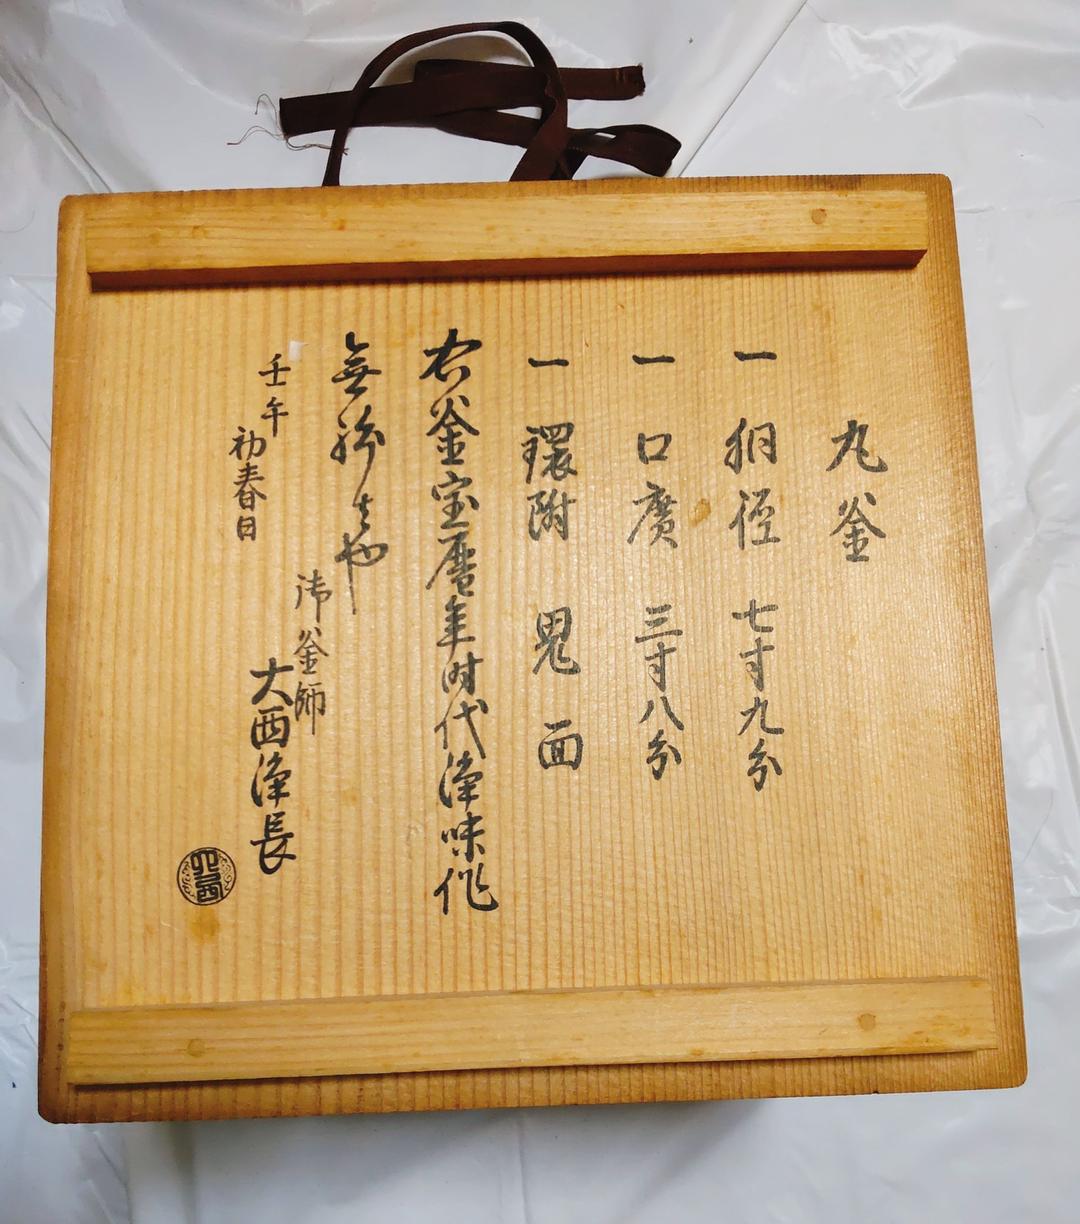 丸釜
一 胴径 七寸九分
一 口廣 三寸八分
一 環附 鬼面
右釜宝暦年时代浄味作
無紛者也
壬午
初春日
御釜師
大西浄長
大西